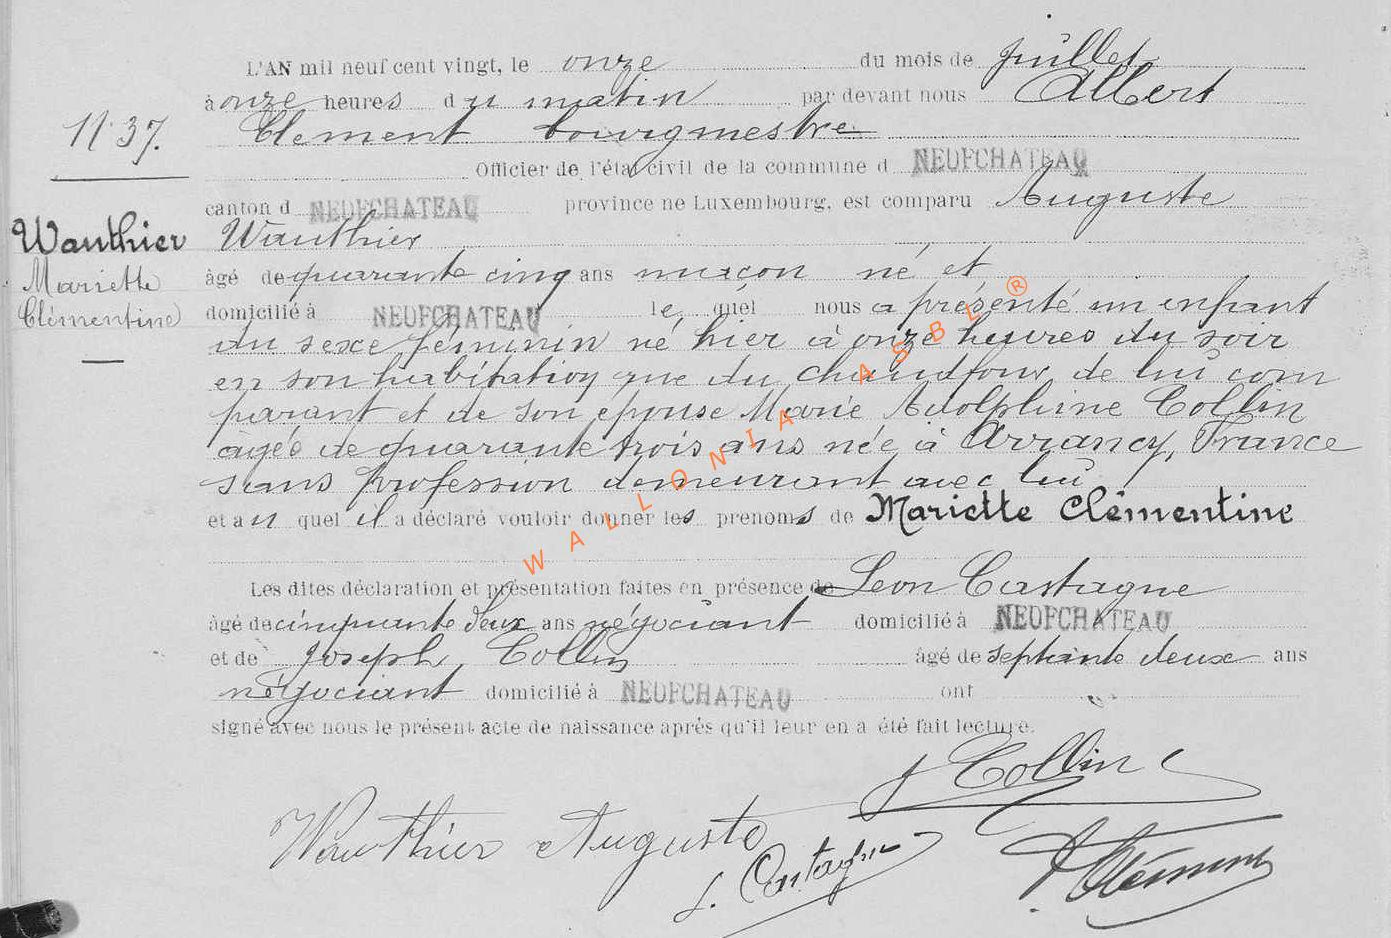 L'AN mil neuf cent vingt, le onze du mois de juillet
à onze heures du matin par devant nous Albert
N° 37.
Clement bourgmestre
Officier de l'état civil de la commune d NEUFCHATEAU
canton d NEUFCHATEAU province ne Luxembourg, est comparu Auguste
Wauthier
Wauthier
Mariette
Clémentine
âgé de quarante cinq ans maçon né et
domicilié à NEUFCHATEAU le quel nous a présenté un enfant
du sexe féminin né hier à onze heures du soir
en son habitation rue du Chaudfour, de lui com
parant et de son épouse Marie Adolphine Collin
âgée de quarante trois ans née à Arrancy, France
sans profession demeurant avec lui
et au quel il a déclaré vouloir donner les prenoms de Mariette Clémentine
Les dites déclaration et présentation faites en présence de Leon Castagne
âgé de cinquante deux ans négociant domicilié à NEUFCHATEAU
et de Joseph Collin âgé de septante deux ans
négociant domicilié à NEUFCHATEAU ont
signé avec nous le présent acte de naissance après qu'il leur en a été fait lecture.
J Collin
Wauthier Auguste
L. Castagne
A. Clément
WALLONIA ASBL ®